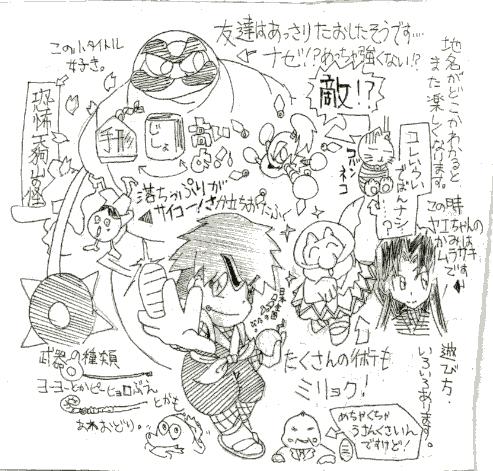 友達はあっさりたおしたそうです…
ナゼ!?めっちゃ強くない!?
このサブタイトル
好き。
恐怖天狗山の怪
手形
じょ
敵!?
コバン
ネコ
地名がどこかかわると
また楽しくなります。
コレいらい
でばんナシ…?
この時
ヤエちゃんの
かみは
ムラサキ
です
落ちっぷりが
サイコー!さか立ちおたふく
武器の種類
ヨーヨーとかピーヒョロぶえ
とかも
あわおどり。
たくさんのイボテも
ミリョク!
遊び方・
いろいろあります。
めちゃくちゃ
うさんくさいん
ですけど!